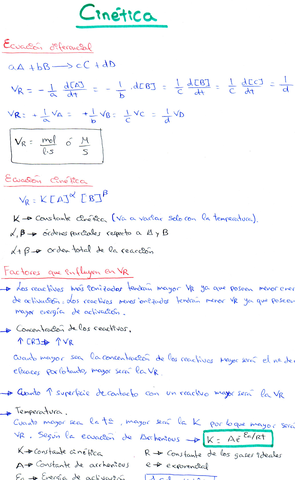 Cinética
Ecuación diferencial
aA + bB → cC + dD
VR = - 1/a d[A]/dt = - 1/b · d[B]/dt = 1/c d[B]/dt = 1/c d[C]/dt = 1/d
VR = + 1/a VA = + 1/b VB = 1/c VC = 1/d VD
VR = mol/l·s ó M/s
Ecuación cinética
VR = K [A]^α [B]^β
K → constante cinética (va a variar solo con la temperatura).
α, β → órdenes parciales respecto a A y B
α + β → orden total de la reacción
Factores que influyen en VR
→ Los reactivos más ionizados tendrán mayor VR ya que poseen menor ener
de activación. Los reactivos menos ionizados tendrán menor VR ya que poseen
mayor energía de activación.
→ Concentración de los reactivos.
↑ [R] → ↑ VR
Cuanto mayor sea la concentración de los reactivos mayor será el nº de
choques por lo tanto, mayor será la VR.
→ Cuanto ↑ superficie de contacto con un reactivo mayor será la VR
→ Temperatura.
Cuanto mayor sea la tª, mayor será la K por lo que mayor será
VR. Según la ecuación de Arrhenius → K = A e^-Ea/RT
K → constante cinética R → Constante de los gases ideales
A → Constante de arrhenius e → exponencial
Ea → Energía de activación